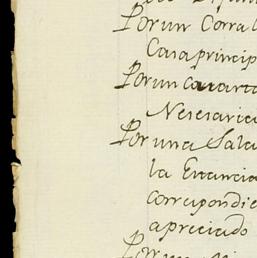 Por un Corral
Casa princip
Por un Cuarto
Nesesaria
Por una Sala
la Estancia
correspondie
apreciado